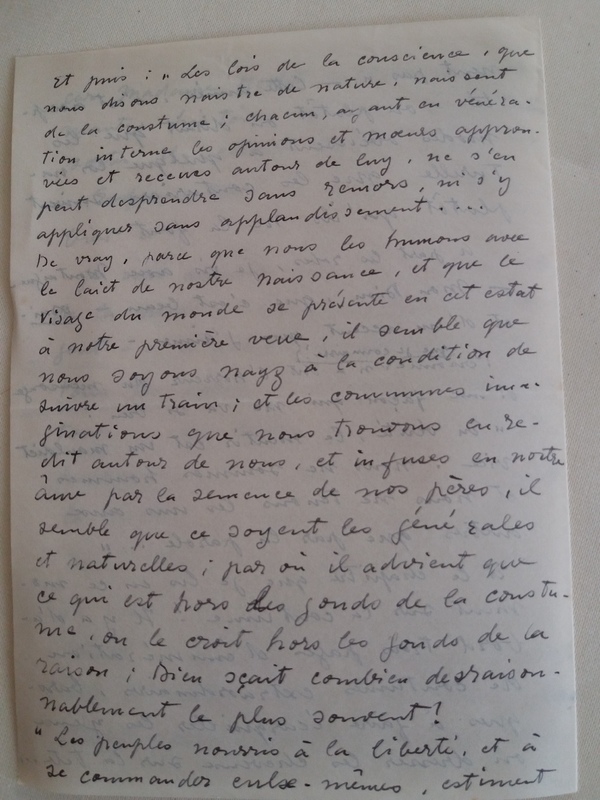 Et puis : " Les lois de la conscience, que
nous disons naistre de nature, naissent
de la constume ; chacun, ayant en vénéra-
tion interne les opinions et mœurs approu-
vées et receues autour de luy, ne s'en
peut desprendre sans remors, ni s'y
appliquer sans applaudissement . . . .
De vray, parce que nous les humons avec
le laict de nostre naissance, et que le
visage du monde se présente en cet estat
à notre première veue, il semble que
nous soyons nayz à la condition de
suivre un train ; et les communes ima-
ginations que nous trouvons en cré-
dit autour de nous, et infuses en nostre
âme par la semence de nos pères, il
semble que ce soyent les générales
et naturelles ; par où il advient que
ce qui est hors les gonds de la constu-
me, on le croit hors les gonds de la
raison ; Dieu sçait combien desraison-
nablement le plus souvent !
" Les peuples nourris à la liberté, et à
se commander eulx-mêmes, estiment